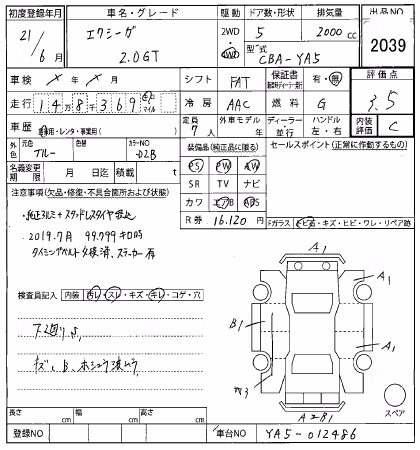 初度登録年月 車名・グレード 駆動 ドア数・形状 排気量 出品NO
21/6月 エクシーガ 2.0GT 2WD 4WD 5 2000 cc 2039
型式 CBA-YA5
車検 シフト FAT 保証書 有・無 評価点
走行 148369 Km マイル 冷房 AAC 燃料 G 3.5
車歴 自家用・レンタ・事業用( ) 定員 7人 外車モデル 年 ディーラー 並行 ハンドル 左・右 内装評価 C
外色 元色 ブルー 色替 カラーNO 02B 装備品(純正品に限る) セールスポイント(正常に動作するもの)
名義変更期限 月 日迄 積載量 t
PS PW AW
SR TV ナビ
カワ エアB ABS
R券 16,120円
注意事項(欠品・修復・不具合箇所および状態)
・純正アルミ+スタッドレスタイヤ積込
2019.7月 99.999キロ時
タイミングベルト交換済、ステッカー有
Fガラス トビ石・キズ・ヒビ・ワレ・リペア跡
検査員記入 内装 汚レ・スレ・キズ・キレ・コゲ・穴
下廻りS,
キズ、B、ホシュウ波ムラ
A1
A1
B1
A1
W3
A2B1
スペア
長さ cm 幅 cm 高さ cm
登録NO 車台NO YA5-012486